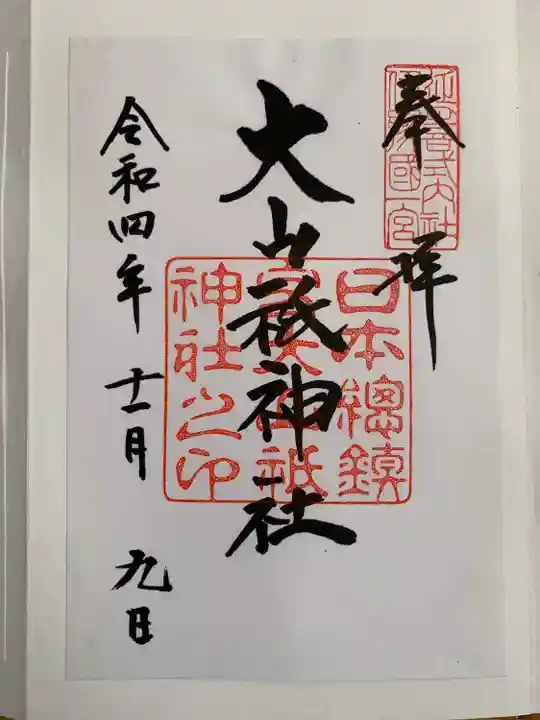 奉拝
延喜式内社
伊豫國一宮
大山祇神社
日本總鎮
守大山祇
神社之印
令和四年 十一月 九日